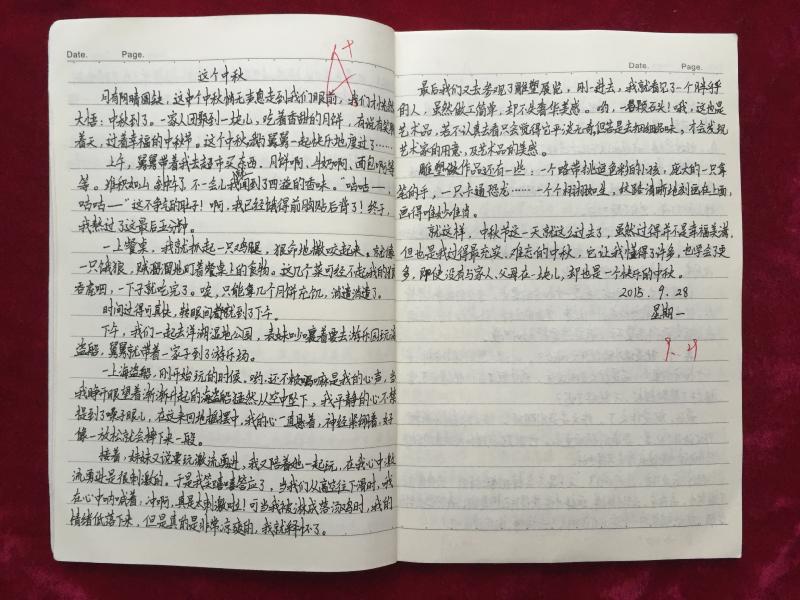 Date. Page.
这个中秋
A+
月有阴晴圆缺,这个中秋悄无声息走到我们眼前,我们才恍然
大悟:中秋到了。一家人团聚到一块儿,吃着香甜的月饼,有说有笑
着天,过着幸福的中秋节。这个中秋,我舅舅一起快乐地度过了……
上午,舅舅带着我去超市买东西。月饼啊、牛奶啊、面包啊等
等。堆积如山 不一会儿我闻到了四溢的香味。“咕咕——,
咕咕——”这不争气的肚子!啊,我已经饿得前胸贴后背了!终于,
我熬过了这最后五分钟。
一上餐桌,我就抓起一只鸡腿,狠命地撕咬起来。就像
一只饿狼,贼溜溜地盯着餐桌上的食物。这几个菜可经不起我的狼
吞虎咽,一下子就吃完了。哎,只能拿几个月饼充饥,消遣消遣了。
时间过得可真快,转眼间都就到了下午。
下午,我们一起去洋湖湿地公园,表妹吵嚷着要去游乐园玩海
盗船,舅舅就带着一家子到了游乐场。
一上海盗船,刚开始玩的时候。哟,还不赖嘛是我的心声,当
我睁开眼望着渐渐升起的海盗船猛然从空中坠下,我平静的心不禁
提到了嗓子眼儿,在这来回地摇摆中,我的心一直悬着,神经紧绷着,好
像一放松就会掉下来一般。
接着,妹妹又说要玩激流勇进,我又陪着他一起玩,在我心中激
流勇进是很刺激的。于是我笑嘻嘻答应了,当我们从高空往下滑时,我
在心中呐喊着,冲啊,真是太刺激啦!可当我被淋成落汤鸡时,我的
情绪低落下来,但是真的是非常凉爽的,我就释怀了。
Date. Page.
最后我们又去参观了雕塑展览,刚一进去,我就看见了一个胖乎乎
的人,虽然做工简单,却不失奢华美感。哟,一番颗石头!哦,这也是
艺术品,若不认真去看只会觉得它平淡无奇,但若是去细细品味,才会发现
艺术家的用意,及艺术品的美感。
雕塑做作品还有一些,一个略带挑逗色彩的小孩,庞大的一只拿
笔的手,一只卡通恐龙……一个个栩栩如生,纹路清晰地刻画在上面,
画得唯妙唯肖。
就这样,中秋节这一天就这么过去了,虽然过得并不是幸福美满,
但也是我过得最充实,难忘的中秋,它让我懂得了许多,也学会了更
多,即使没有与家人、父母在一块儿,却也是一个快乐的中秋。
2015.9.28
星期一
9.29